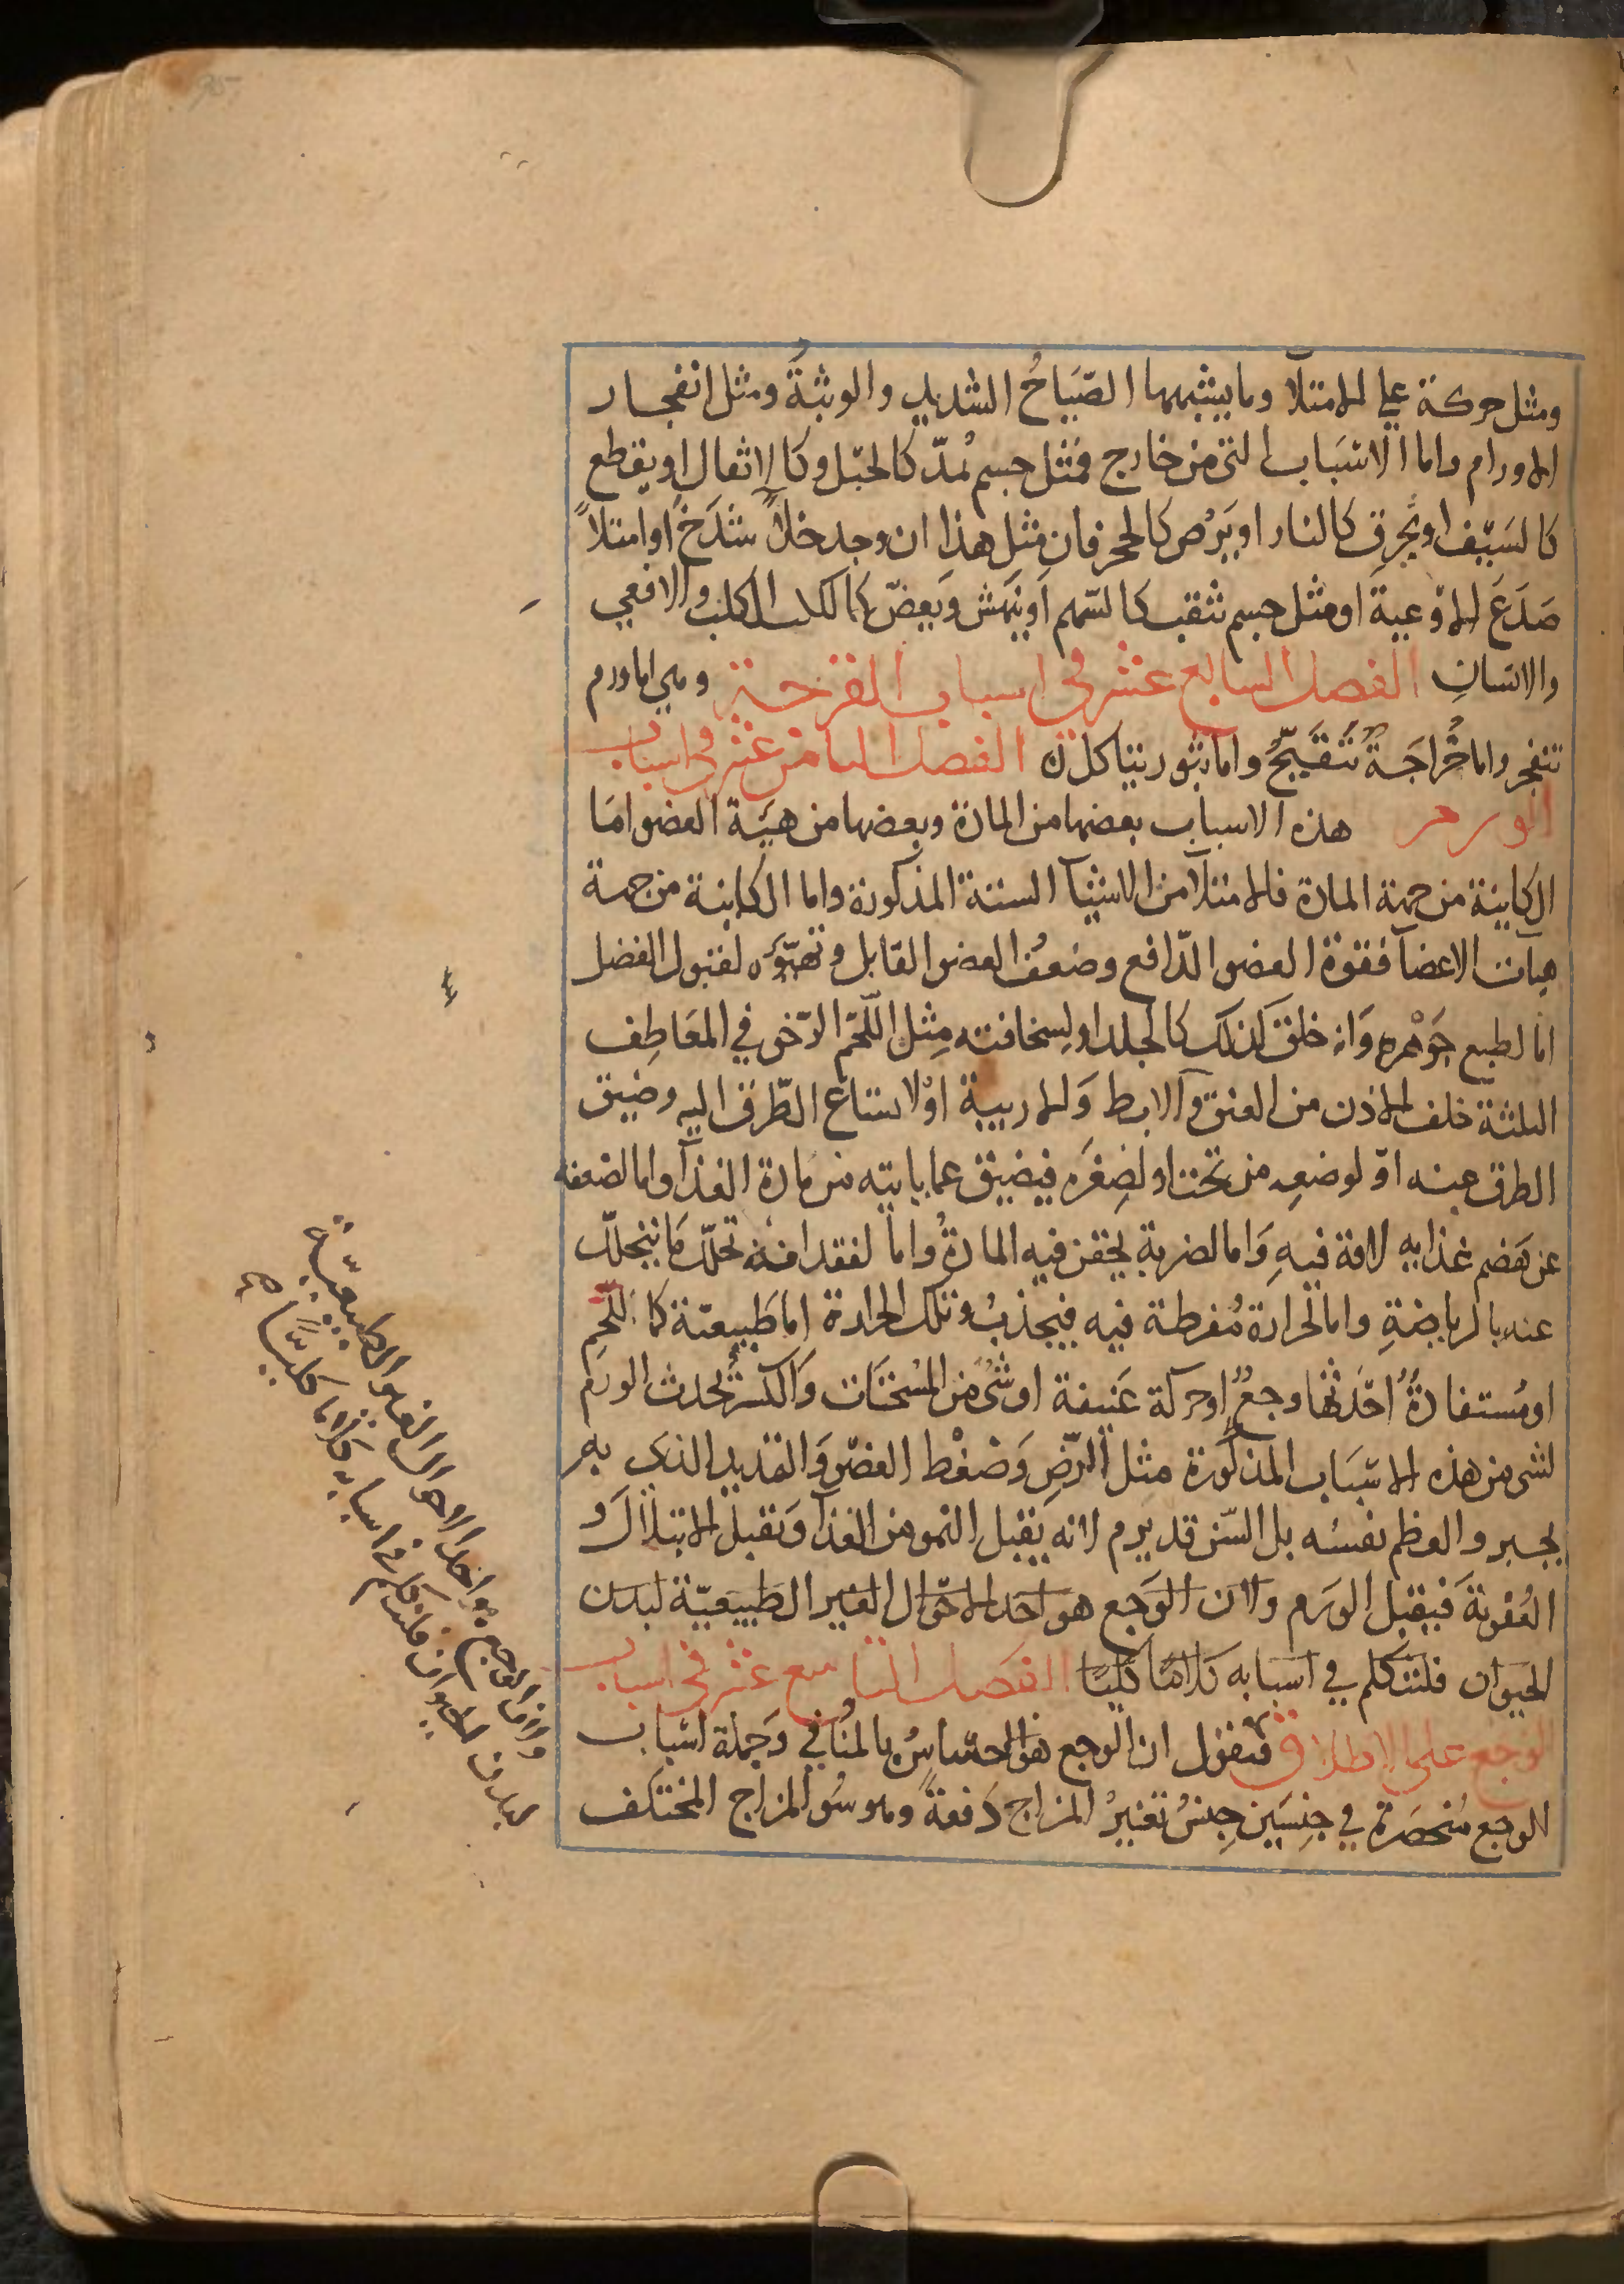 ومثل حركة على الامتلا وما يشبهها الصّيَاحُ الشديد والوثبةُ ومثل انفجار
الاورام واما الاسبَاب التى من خارج فمثل جسم يُمدّ كالحَبْل وكالاثقال او يقطع
كالسَيْف او يحرق كالنار او يَرُض كالحجر فان مثل هذا ان وجد خلاً شَدَخَ او امتلاً
صَدَعَ الاوعية او مثل جسم يثقب كالسّهم او ينهش ويَعضّ كالكلب الكلب والافعي
والانسانِ الفصل السابع عشر في اسباب القرحة وهي اما ورم
تنفجر واما خُراجَةٌ تتقيّحُ واما بثور تتاكل الفصل الثامن عشر فى اسباب
الورم هذه الاسباب بعضها من المادة وبعضها من هيَئة العضو امَا
الكاينة من جهة المادة فالامتلآ من الاشيآ الستة المذكورة واما الكاينة من جهة
هيآت الاعضآ فقوة العضو الدّافع وضعفُ العضو القابل وتهيّؤه لقبول الفضل
اما لطبع جَوْهره وَانه خلق لذلك كالجلد او لِسخافته مِثل اللّحَم الرّخو في المعَاطِف
الثلثة خلف الاذن من العنق والابط وَالاربية اوْ لاتساع الطّرق اليه وضيق
الطرق عنه اوْ لوضعِه من تحت او لصِغَره فيضيق عما ياتيه من مادة الغذآ واما لضعفه
عن هَضم غذايه لافة فيهِ وَاما لضربة يحقن فيه المادةُ واما لفقدانه تحلّل مَا يتحلّل
عنه بالرياضةِ واما لحَرارة مُفرطة فيه فيجذبُ وتلك الحرارة اما طَبيعيّة كما للّحَمِ
او مُستفادةٌ احَدثها وجعٌ او حركة عَنيفة او شىٌ من المسُخنَات وَالكسرُ يُحدث الورَم
لشى من هذه الاسبَاب المذكورة مثل الرّضِ وَضغْط العضو وَالتمديد الذى به
يجبر والعظم نفسُه بل السّن قد يرم لانه يَقبل النموَ من الغذآ وَيقبل الابتلال وَ
العُفونةَ فَيقبل الورَم ولان الوَجع هو احَد الاحوَال الغير الطَبيعيّة لبدن
الحيَوان فلنتكلم في اسبَابه كلامًا كليًا الفصل التاسع عشر فى اسباب
الوجع على الاطلاق فنقول ان الوجع هو الاحسَاسُ بالمُنافي وَجملة اسباب
الوجع مُنحصَرة في جنسَين جِنسُ تغييرُ المزاج دَفعةً وهو سُو المزاج المختلف
ولان الوجع هو احد الاحوال الغير الطبيعيّة
لبدن الحيوان فلنتكلم في اسبابه كلاما كليًّا صح